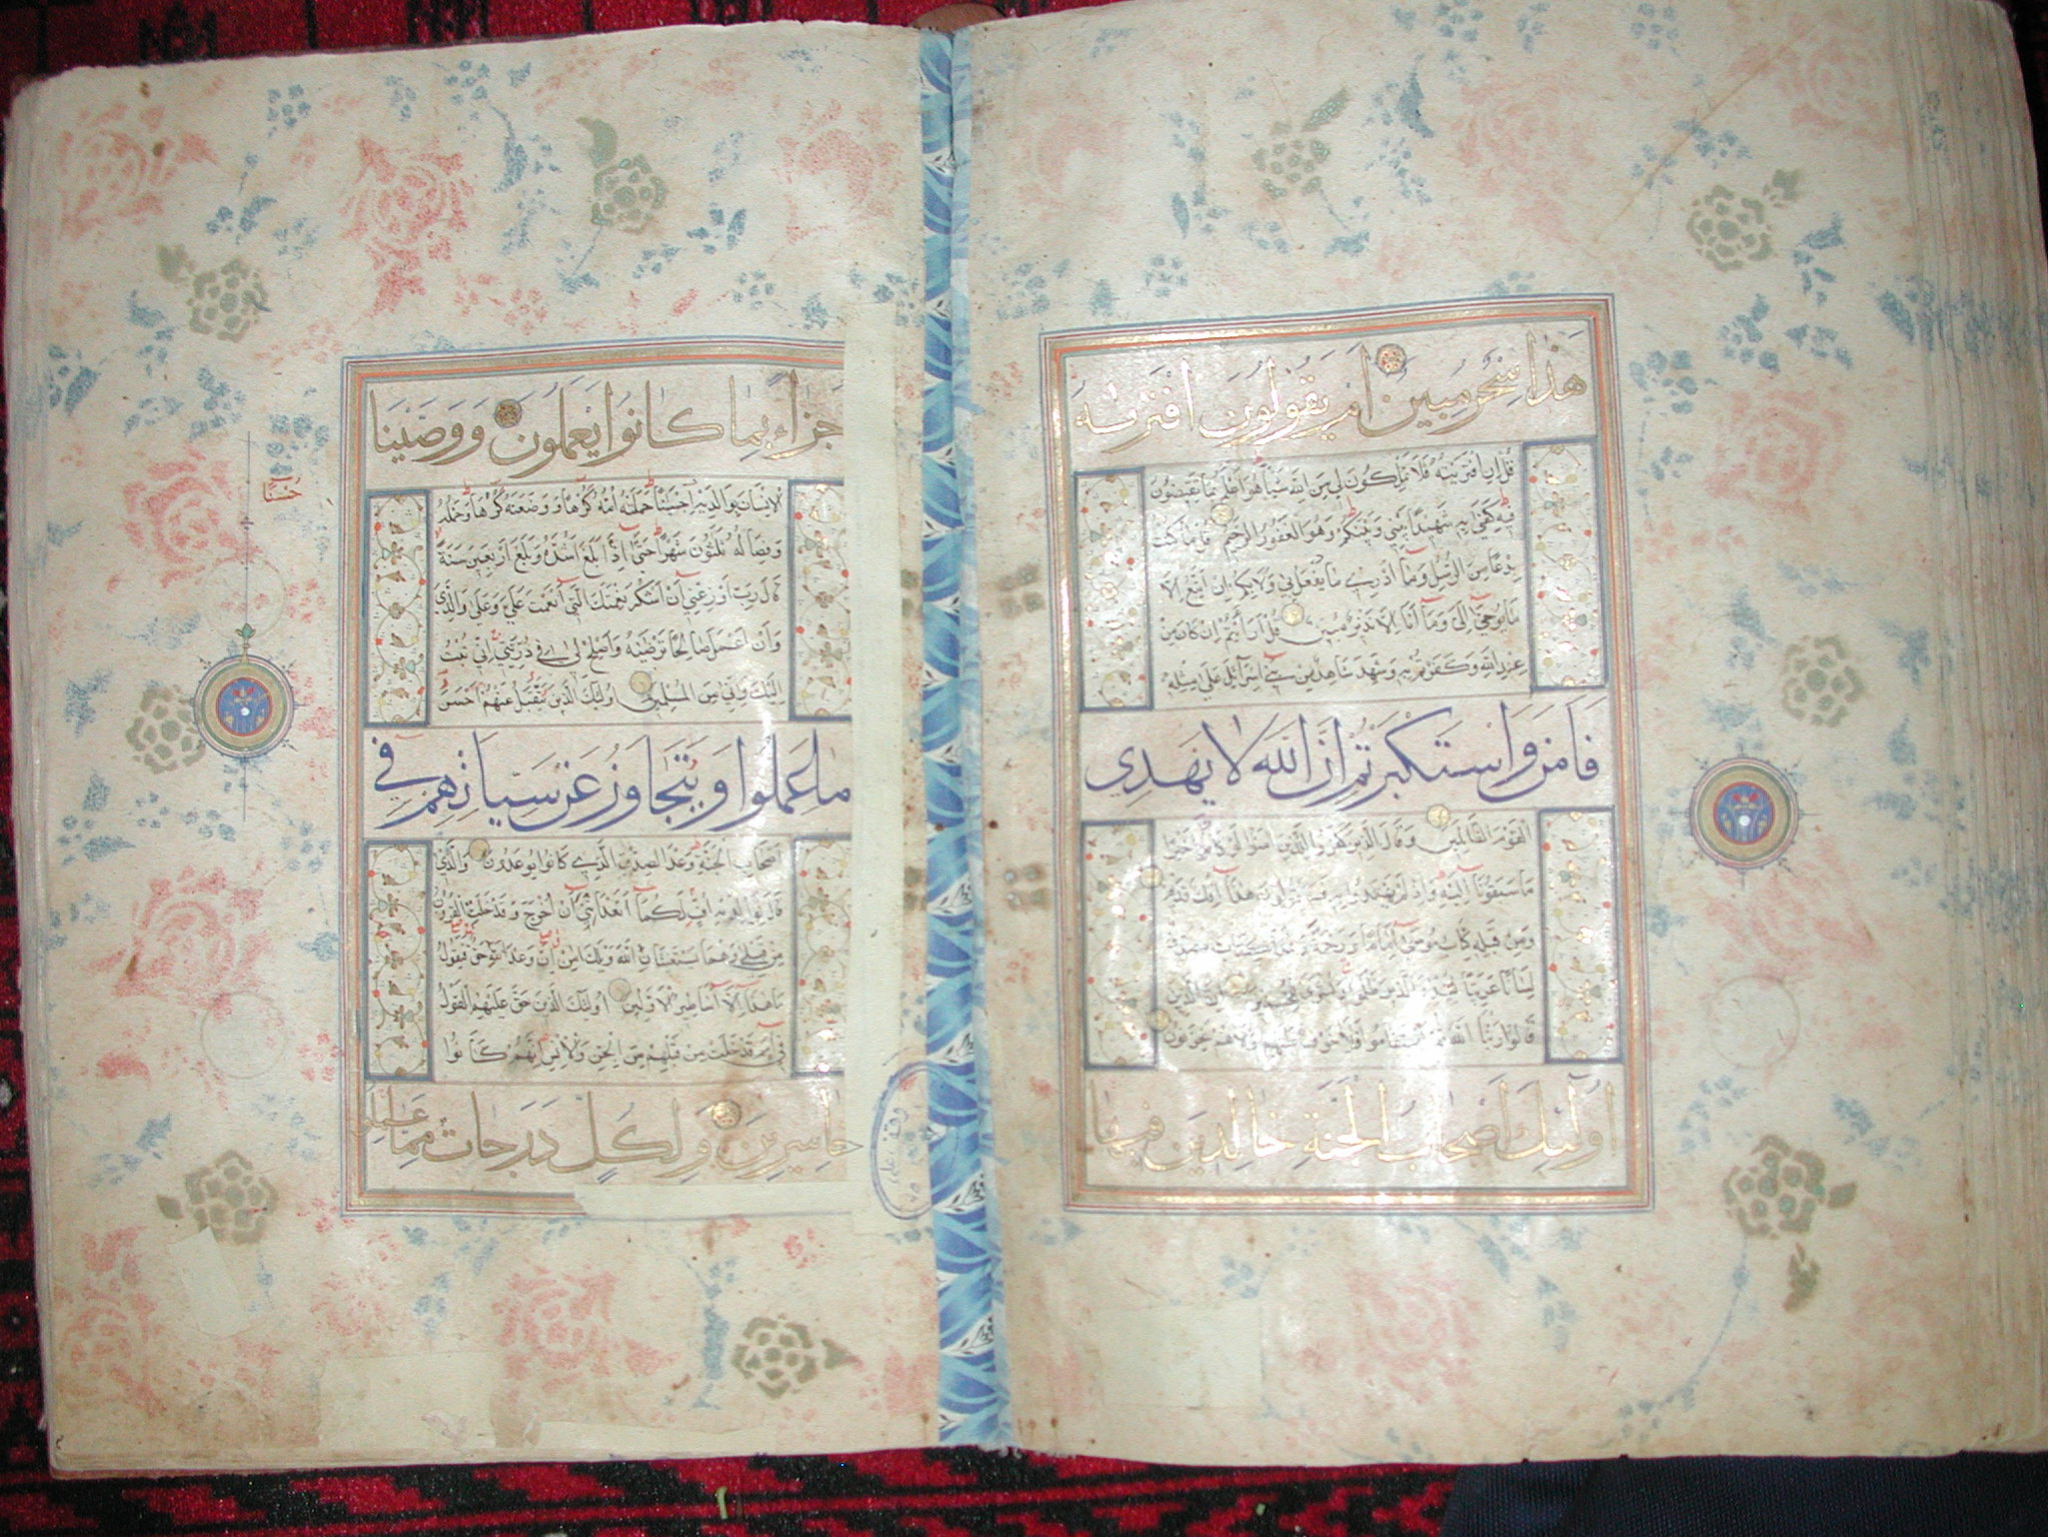 هذا سحر مبين ام يقولون افتريه
قُل اِن افتريته فلا تملكون لي من الله شيأ هو اعلم بما تفيضون
فيه كفى به شهيدا بيني وبينكم وهو الغفور الرحيم قل ما كنت
بدعا من الرسل وما ادري ما يفعل بي ولا بكم ان اتبع الا
ما يوحى الى وما انا الا نذير مبين قل ارايتم ان كان من
عند الله وكفرتم به وشهد شاهد من بني اسرآئيل على مثله
فامن واستكبرتم ان الله لا يهدي
القوم الظالمين وقال الذين كفروا للذين امنوا لو كان خيرا
ما سبقونا اليه واذ لم يهتدوا به فسيقولون هذا افك قديم
ومن قبله كتاب موسى اماما ورحمة وهذا كتاب مصدق
لسانا عربيا لينذر الذين ظلموا وبشرى للمحسنين ان الذين
قالوا ربنا الله ثم استقاموا فلا خوف عليهم ولا هم يحزنون
اولئك اصحاب الجنة خالدين فيها
جزاء بما كانوا يعملون ووصينا
الانسان بوالديه احسانا حملته امه كرها ووضعته كرها وحمله
وفصاله ثلثون شهرا حتى اذا بلغ اشده وبلغ اربعين سنة
قال رب اوزعني ان اشكر نعمتك التى انعمت علي وعلى والدي
وان اعمل صالحا ترضيه واصلح لي في ذريتي اني تبت
اليك واني من المسلمين اولئك الذين نتقبل عنهم احسن
ما عملوا ونتجاوز عن سيئاتهم في
اصحاب الجنة وعد الصدق الذي كانوا يوعدون والذي
قال لوالديه اف لكما اتعدانني ان اخرج وقد خلت القرون
من قبلي وهما يستغيثان الله ويلك امن ان وعد الله حق فيقول
ما هذا الا اساطير الاولين اولئك الذين حق عليهم القول
في امم قد خلت من قبلهم من الجن والانس انهم كانوا
خاسرين ولكل درجات مما عملوا
حسنا